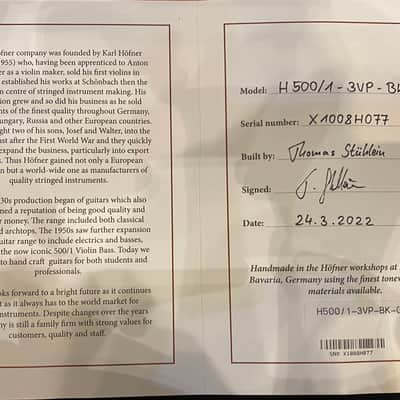 fner company was founded by Karl Höfner
955) who, having been apprenticed to Anton
er as a violin maker, sold his first violins in
established his works at Schönbach then the
n centre of stringed instrument making. His
ion grew and so did his business as he sold
nts of the finest quality throughout Germany,
ungary, Russia and other European countries.
ght two of his sons, Josef and Walter, into the
ust after the First World War and they quickly
expand the business, particularly into export
s. Thus Höfner gained not only a European
n but a world-wide one as manufacturers of
quality stringed instruments.
30s production began of guitars which also
ned a reputation of being good quality and
r money. The range included both classical
d archtops. The 1950s saw further expansion
uitar range to include electrics and basses,
the now iconic 500/1 Violin Bass. Today we
to hand craft guitars for both students and
professionals.
oks forward to a bright future as it continues
t as it always has to the world market for
nstruments. Despite changes over the years
ny is still a family firm with strong values for
customers, quality and staff.
Model: H 500/1-3VP-BK
Serial number: X1008H077
Built by: Thomas Stühlein
Signed:
Date: 24.3.2022
Handmade in the Höfner workshops at
Bavaria, Germany using the finest tonew
materials available.
H500/1-3VP-BK-
SN# X1008H077